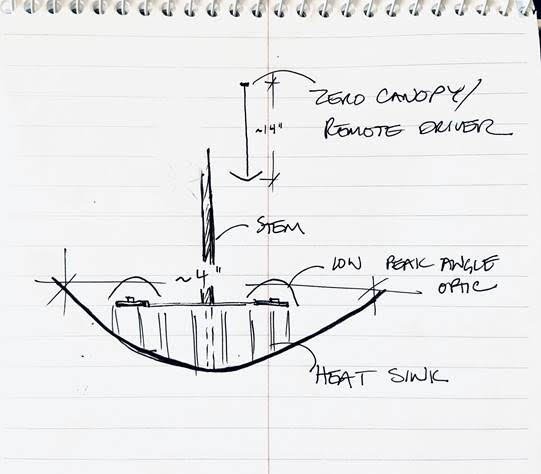 ZERO CANOPY/
REMOTE DRIVER
~14"
STEM
~4"
LOW PEAK ANGLE
OPTIC
HEAT SINK